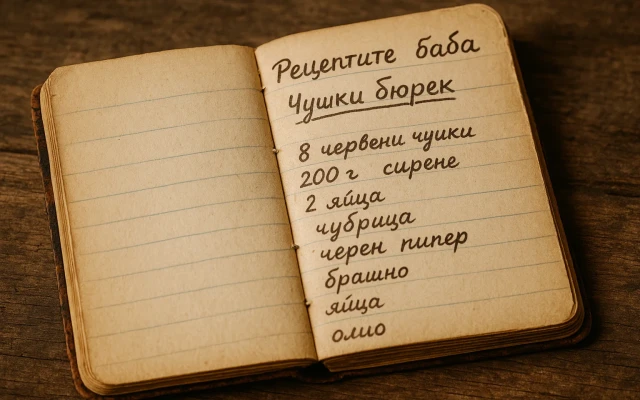 Рецептите баба
Чушки бюрек
8 червени чушки
200 г сирене
2 яйца
чубрица
черен пипер
брашно
яйца
олио